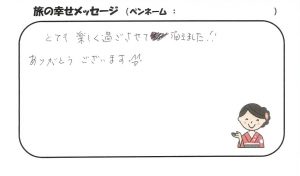 旅の幸せメッセージ (ペンネーム : )
とても 楽しく過ごさせて 頂きました!!
ありがとう ございます